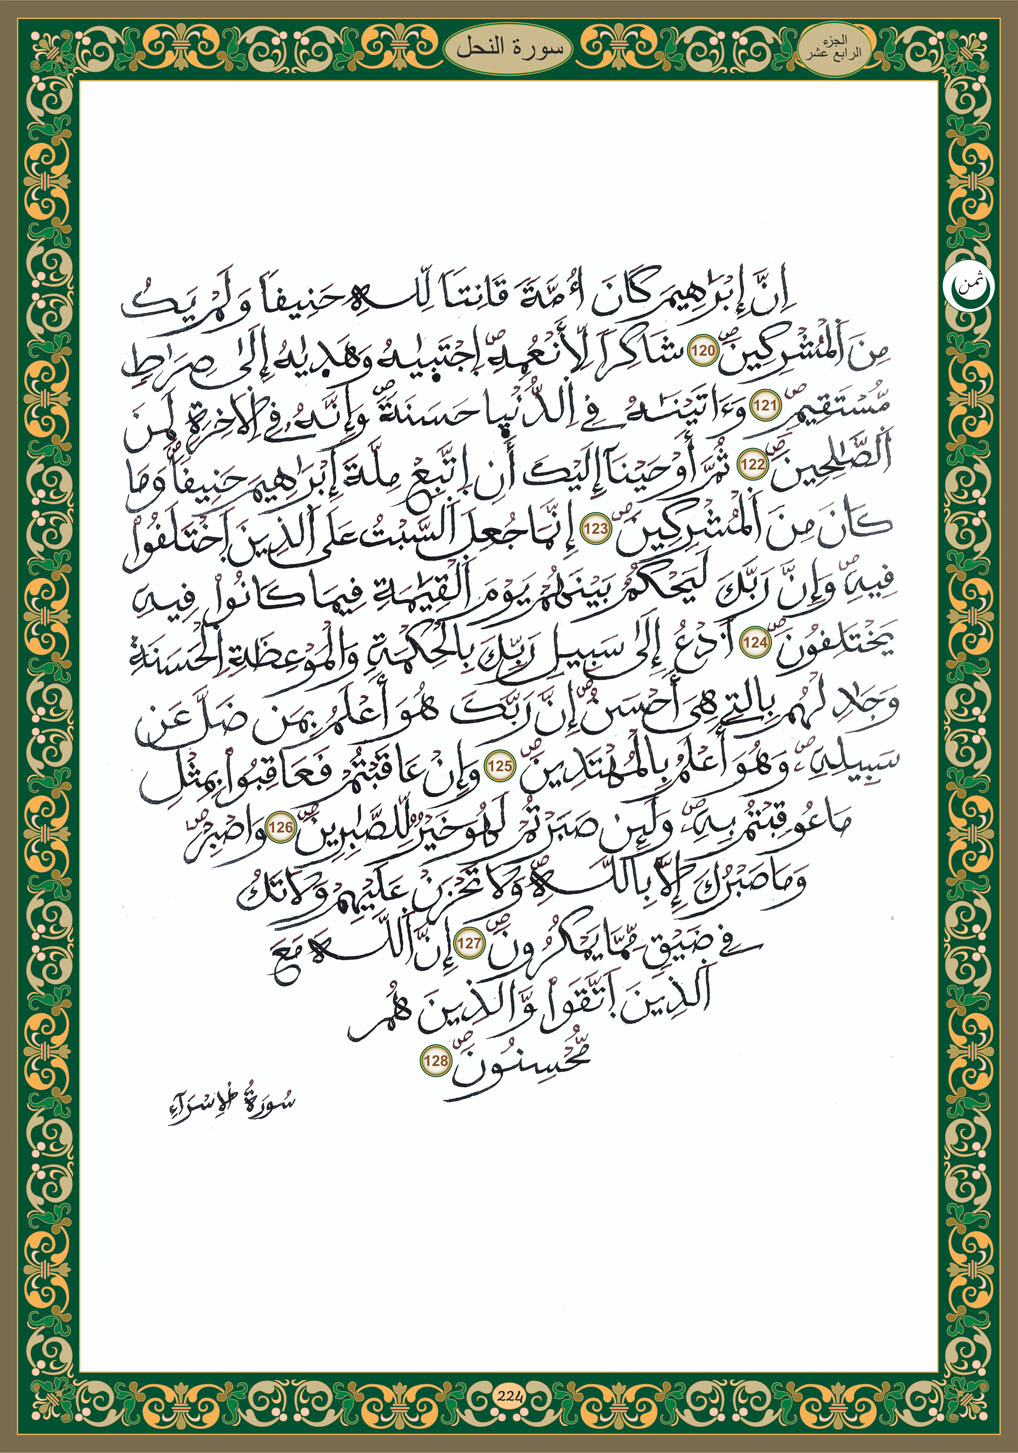 سورة النحل
الجزء
الرابع عشر
ثمن
اِنَّ إِبْرَٰهِيمَ كَانَ أُمَّةً قَانِتاً لِّلهِ حَنِيفاً وَلَمْ يَكُ
مِنَ اَلْمُشْرِكِينَۖ 120 شَاكِراً لِّأَنْعُمِهِۖ اِجْتَبٜيٰهُ وَهَدٜيٰهُ إِلَىٰ صِرَٰطٍ
مُّسْتَقِيمٍۖ 121 وَءَاتَيْنَٰهُ فِي اِلدُّنْيٜا حَسَنَةًۖ وَإِنَّهُۥ فِي اِلَاخِرَةِ لَمِنَ
اَلصَّٰلِحِينَۖ 122 ثُمَّ أَوْحَيْنَآ إِلَيْكَ أَنِ اِتَّبِعْ مِلَّةَ إِبْرَٰهِيمَ حَنِيفاًۖ وَمَا
كَانَ مِنَ اَلْمُشْرِكِينَۖ 123 إِنَّمَا جُعِلَ اَلسَّبْتُ عَلَى اَلذِينَ اَخْتَلَفُواْ
فِيهِۖ وَإِنَّ رَبَّكَ لَيَحْكُمُ بَيْنَهُمْ يَوْمَ اَلْقِيَٰمَةِ فِيمَا كَانُواْ فِيهِ
يَخْتَلِفُونَۖ 124 اَدْعُ إِلَىٰ سَبِيلِ رَبِّكَ بِالْحِكْمَةِ وَالْمَوْعِظَةِ اِلْحَسَنَةِ
وَجَٰدِلْهُم بِالتِے هِيَ أَحْسَنُۖ إِنَّ رَبَّكَ هُوَ أَعْلَمُ بِمَن ضَلَّ عَن
سَبِيلِهِۦۖ وَهُوَ أَعْلَمُ بِالْمُهْتَدِينَۖ 125 وَإِنْ عَاقَبْتُمْ فَعَاقِبُواْ بِمِثْلِ
مَا عُوقِبْتُم بِهِۦۖ وَلَئِن صَبَرْتُمْ لَهُوَ خَيْرٌ لِّلصَّٰبِرِينَۖ 126 وَاصْبِرْۖ
وَمَا صَبْرُكَ إِلَّا بِاللَّهِۖ وَلَا تَحْزَنْ عَلَيْهِمْ وَلَا تَكُ
فِے ضَيْقٍ مِّمَّا يَمْكُرُونَۖ 127 إِنَّ اَللَّهَ مَعَ
اَلذِينَ اَتَّقَواْ وَّالذِينَ هُم
مُّحْسِنُونَۖ 128
سُورَةُ اُلِاسْرَآءِ
224